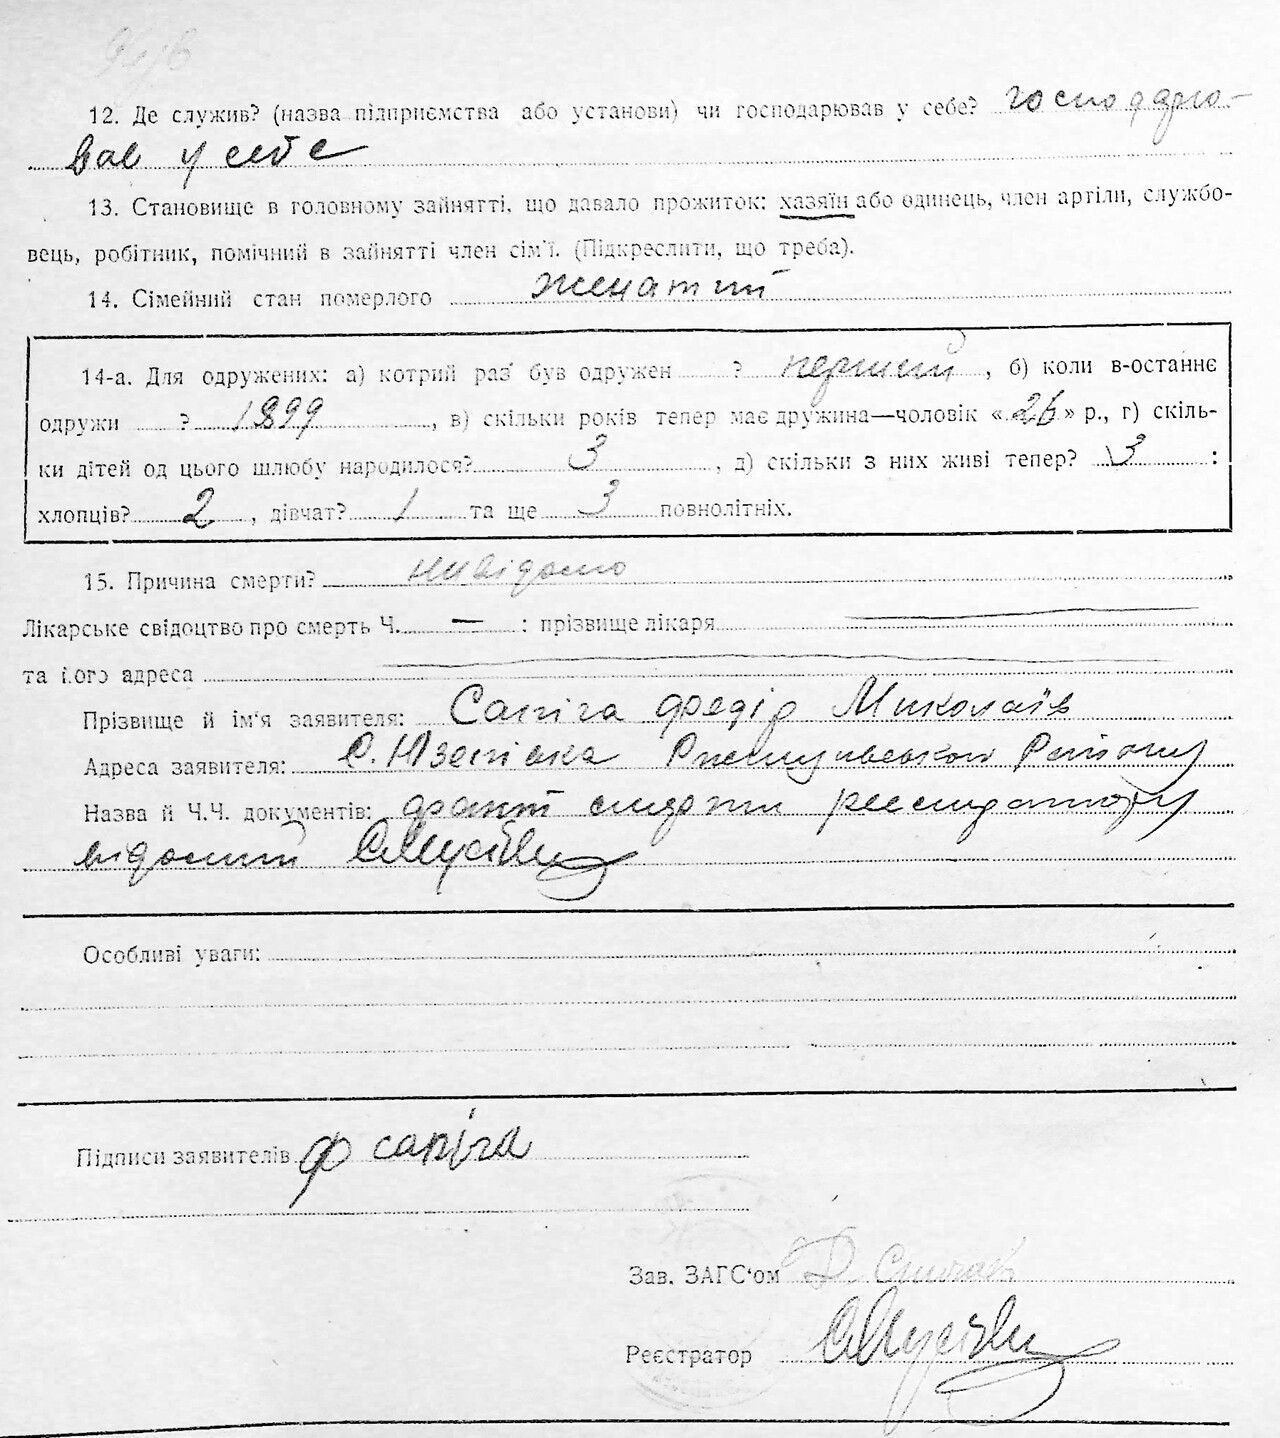 12. Де служив? (назва підприємства або установи) чи господарював у себе? господарю-
вав у себе
13. Становище в головному зайнятті, що давало прожиток: хазяїн або одинець, член артіли, службо-
вець, робітник, помічний в зайнятті член сім'ї. (Підкреслити, що треба).
14. Сімейний стан померлого женатий
14-а. Для одружених: а) котрий раз був одружен ? перший, б) коли в-останнє
одружи ? 1899, в) скільки років тепер має дружина—чоловік «26» р., г) скіль-
ки дітей од цього шлюбу народилося? 3, д) скільки з них живі тепер? 3 :
хлопців? 2, дівчат? 1 та ще 3 повнолітніх.
15. Причина смерти? невідомо
Лікарське свідоцтво про смерть Ч. — : прізвище лікаря
та його адреса
Прізвище й ім'я заявителя: Сапіга Федір Миколаїв
Адреса заявителя: С. Юзепівка Району
Назва й Ч.Ч. документів: факт смерти реєстратору
відомий
Особливі уваги:
Підписи заявителів Ф Сапіга
Зав. ЗАГС'ом
Реєстратор